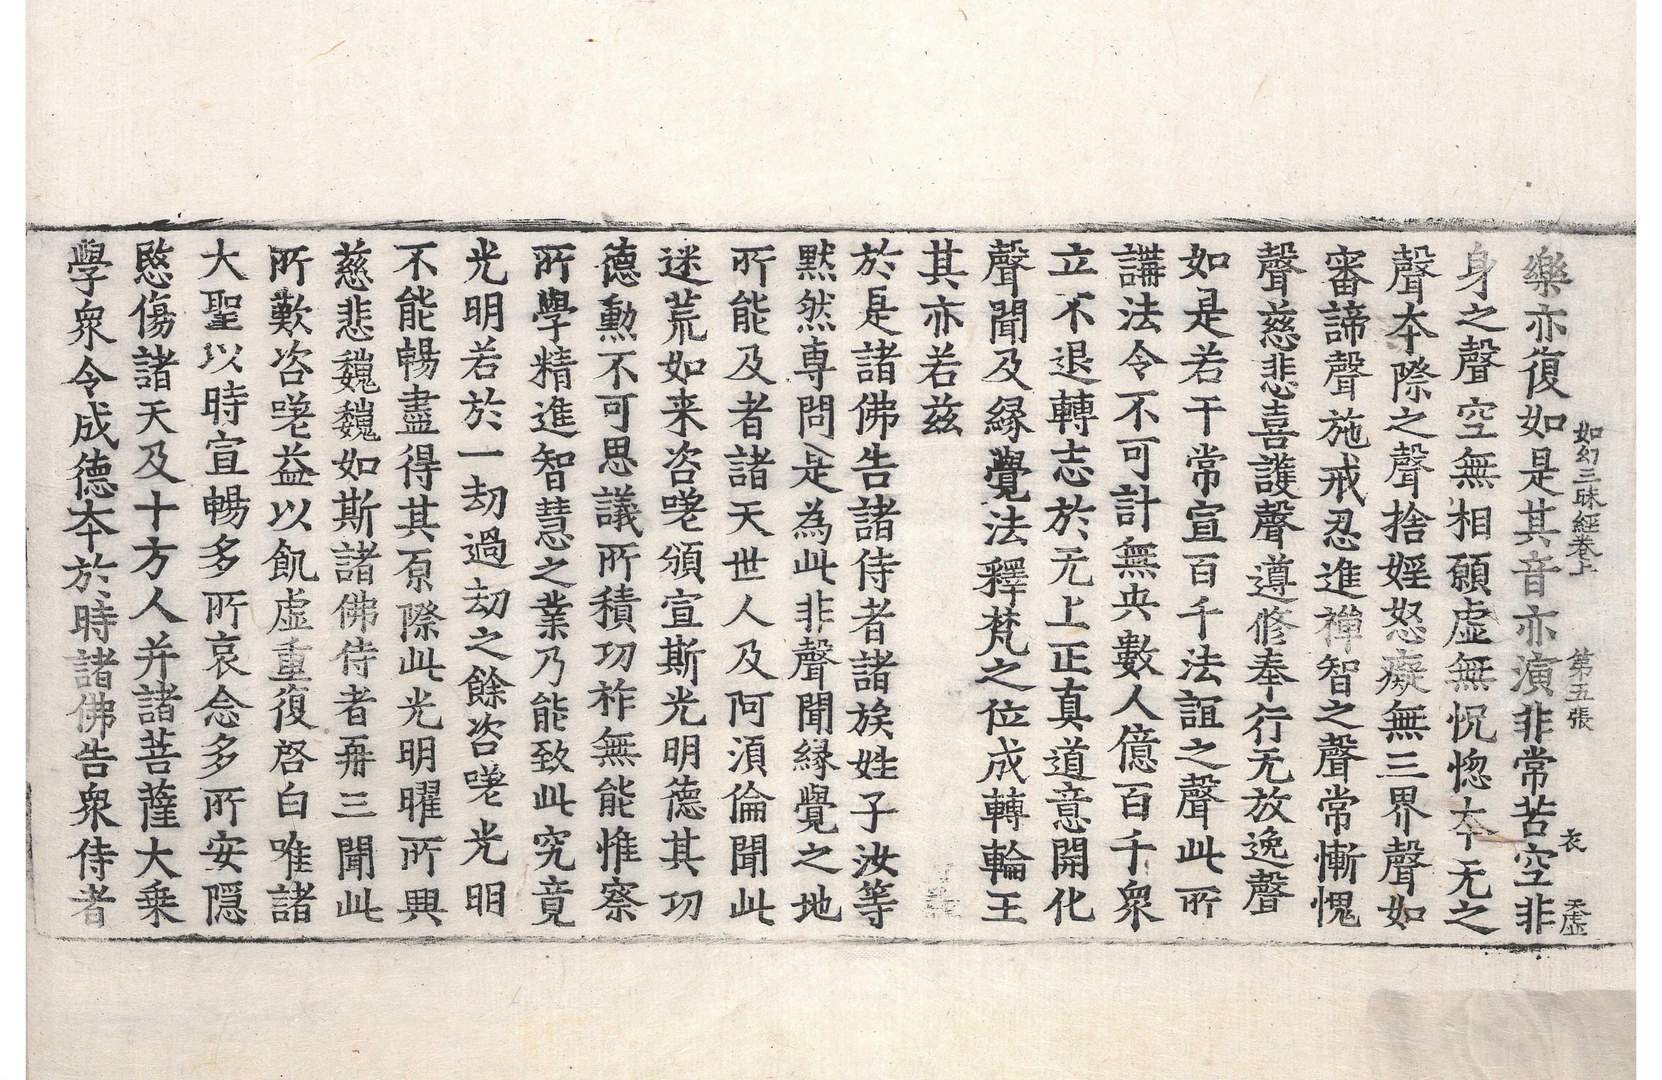 如幻三昧經卷上　第五張　衣　天虛
樂亦復如是其音亦演非常苦空非
身之聲空無相願虛無怳惚夲无之
聲夲際之聲捨婬怒癡無三界聲如
審諦聲施戒忍進禪智之聲常慚愧
聲慈悲喜護聲遵修奉行无放逸聲
如是若干常宣百千法誼之聲此所
講法令不可計無央數人億百千衆
立不退轉志於无上正真道意開化
聲聞及縁覺法釋梵之位成轉輪王
其亦若兹
於是諸佛告諸侍者諸族姓子汝等
黙然専問是為此非聲聞縁覺之地
所能及者諸天世人及阿湏倫聞此
迷荒如来咨嗟頒宣斯光明德其功
德勳不可思議所積功祚無能惟察
所學精進智慧之業乃能致此究竟
光明若於一劫過劫之餘咨嗟光明
不能暢盡得其原際此光明曜所興
慈悲巍巍如斯諸佛侍者再三聞此
所歎咨嗟益以飢虛重復啓白唯諸
大聖以時宣暢多所哀念多所安隱
愍傷諸天及十方人并諸菩薩大乗
學衆令成德夲於時諸佛告衆侍者